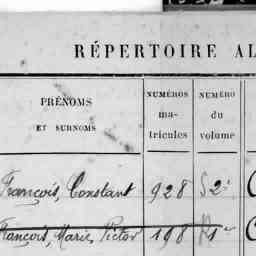 RÉPERTOIRE AL
PRÉNOMS
ET SURNOMS
NUMÉROS
ma-
tricules
NUMÉRO
du
volume
François, Constant 928
François, Marie, Victor 198